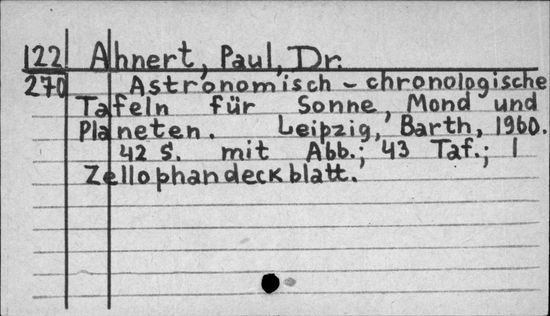 122 Ahnert, Paul, Dr.
270 Astronomisch - chronologische
Tafeln für Sonne, Mond und
Planeten. Leipzig, Barth, 1960.
42 S. mit Abb.; 43 Taf.; 1
Zellophandeckblatt.